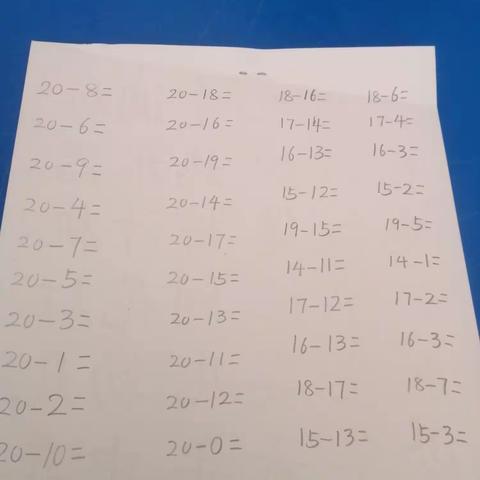 20-8= 20-18= 18-16= 18-6=
20-6= 20-16= 17-14= 17-4=
20-9= 20-19= 16-13= 16-3=
20-4= 20-14= 15-12= 15-2=
20-7= 20-17= 19-15= 19-5=
20-5= 20-15= 14-11= 14-1=
20-3= 20-13= 17-12= 17-2=
20-1= 20-11= 16-13= 16-3=
20-2= 20-12= 18-17= 18-7=
20-10= 20-0= 15-13= 15-3=